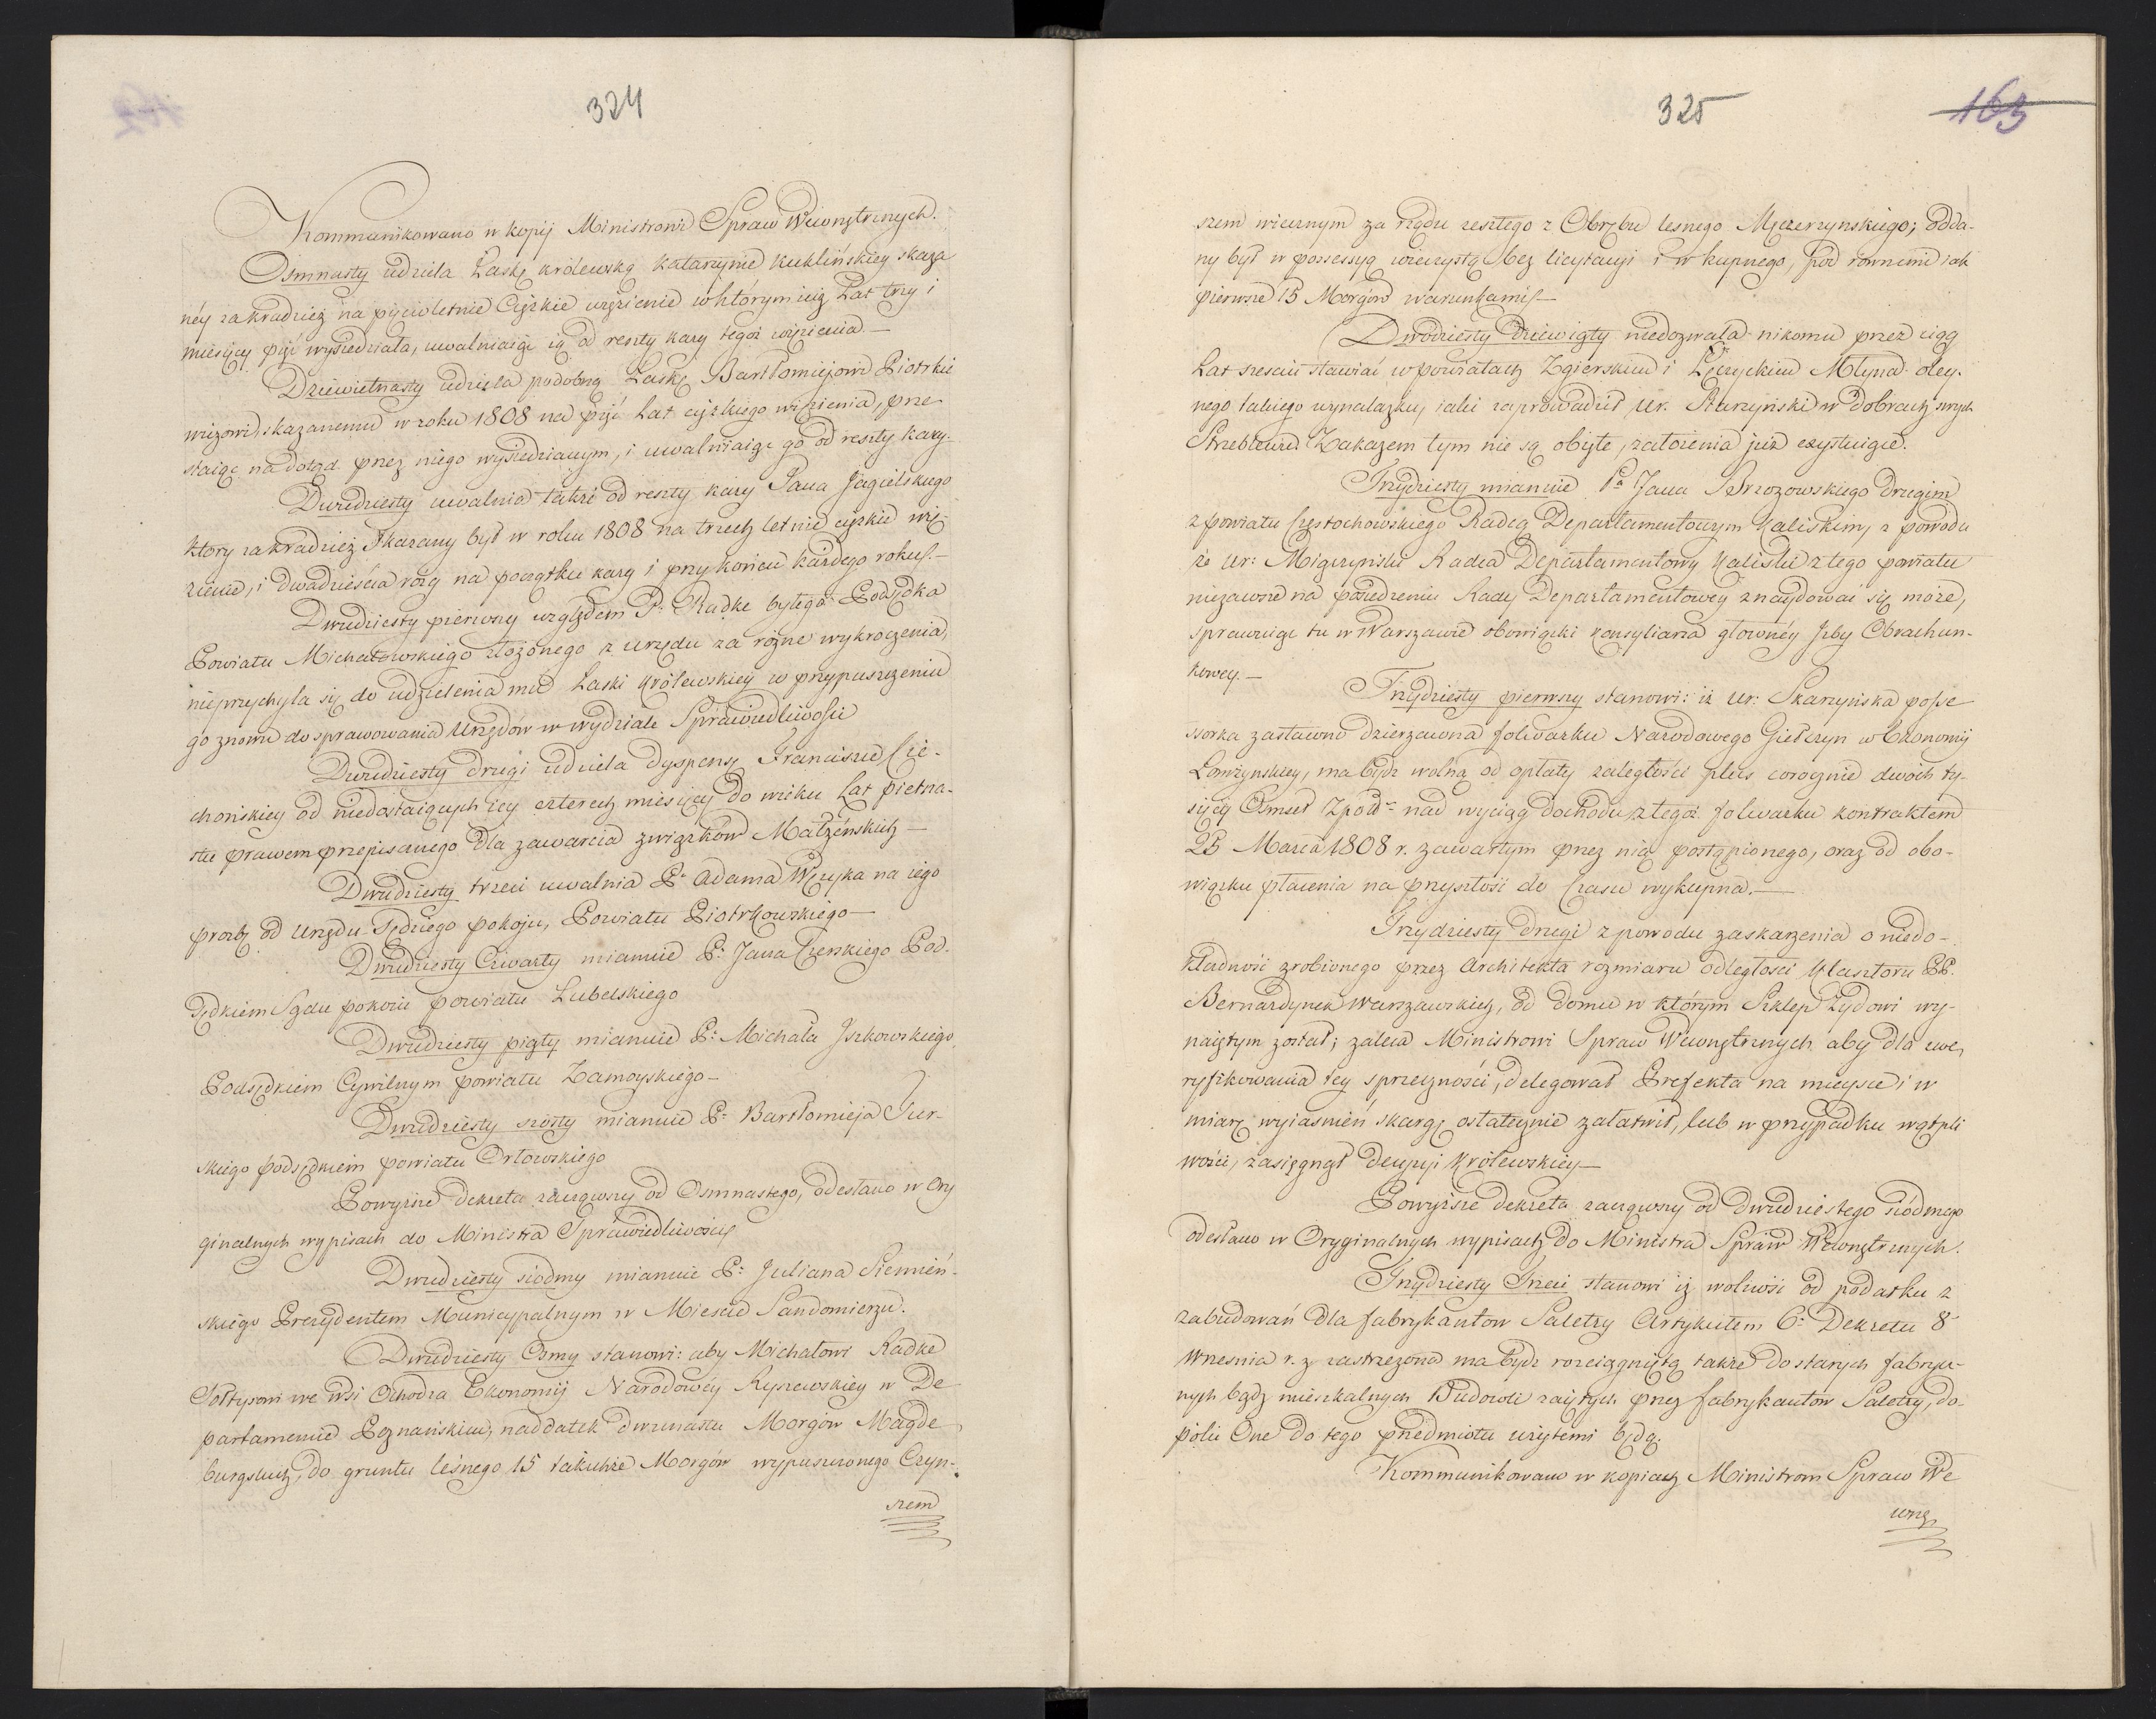 324
Kommunikowano w kopij Ministrowi Spraw Wewnętrznych.
Osmnasty udziela Łaskę królewską Katarzynie Kuklińskiey skaza
néy za kradzież na pięcioletnie Ciężkie więzienie w którym iuż Lat trzy i
miesięcy pięć wysiedziała, uwalniaiąc ią od reszty kary tegoż więzienia.—
Dziewietnasty udziela podobną Łaskę Bartłomiejowi Piotrkie
wiczowi, skazanemu w roku 1808 na pięć Lat ciężkiego więzienia, prze
staiąc na dotąd przez niego wysiedzianym, i uwalniaiąc go od reszty kary.
Dwudziesty uwalnia także od reszty kary Pawa Jagielskiego
który za kradzież skazany był w roku 1808 na trzech letnie ciężkie wię-
zienie, i dwadzieścia rózg na początku kary i przy końcu każdego roku.—
Dwudziesty pierwszy względem P. Radke byłego Podsędka
Powiatu Michałowskiego złożonego z urzędu za różne wykroczenia,
nieprzychyla się do udzielenia mu Łaski Królewskiey w przypuszczeniu
go znowu do sprawowania Urzędów w wydziale Sprawiedliwości
Dwudziesty drugi udziela dyspensę Franciszce Cie-
chońskiey od niedostaiących iey czterech miesięcy do wieku Lat pietna-
stu prawem przepisanego dla zawarcia związków Małżeńskich—
Dwudziesty trzeci uwalnia P. Adama Wężyka na iego
prozbę od Urzędu Sędziego pokoju, Powiatu Piotrkowskiego—
Dwudziesty Czwarty mianuie P. Jana Czerskiego Pod-
sędkiem Sądu pokoiu powiatu Lubelskiego
Dwudziesty piąty mianuie P. Michała Jszkowskiego
Podsędkiem Cywilnym powiatu Zamoyskiego—
Dwudziesty szósty mianuie P. Bartłomieja Jur-
skiego podsędkiem powiatu Orłowskiego
Powyższe dekreta zacząwszy od Osmnastego, odesłano w Ory
ginalnych wypisach do Ministra Sprawiedliwości
Dwudziesty siódmy mianuie P. Juliana Siemień-
skiego Prezydentem Municypalnym w Mieście Sandomierzu.
Dwudziesty Osmy stanowi: aby Michałowi Radke
Sołtysowi we wsi Ochodza Ekonomij Narodowéy Ryszewskiey w De
partamencie Poznańskim, naddatek dwunastu Morgów Magde
burgskich, do gruntu leśnego 15 takichże Morgów wypuszczonego Czyn-
szem
325
163
szem wiecznym za rządu zeszłego z Obrębu lesnego Mączerzynskiego; odda-
ny był w possessyą wieczystą bez licytacyi i w kupnego, pod równemi iak
pierwsze 15 Morgów warunkami—
Dwódziesty dziewiąty niedozwala nikomu przez ciąg
Lat sześciu stawiać w powiatach Zgierskim i Łęczyckim Młyna oley-
nego takiego wynalazku, iaki zaprowadził Ur. Starzyński w dobrach swych
Strzeblewie. Zakazem tym nie są obięte, założenia już exystuiące.
Trzydziesty mianuie Pa Jana Brzozowskiego drugim
z powiatu Częstochowskiego Radcą Departamentowym Kaliskim, z powodu
że Ur: Miączynski Radca Departamentowy Kaliski z tego powiatu
niezawsze na posiedzeniu Rady Departamentowey znaydować się może,
sprawuiąc tu w Warszawie obowiązki Konsyliarza głownéy Jzby Obrachun-
kowey.—
Trzydziesty pierwszy stanowi: iż Ur: Skarzyńska posse
ssorka zastawno dzierzawna folwarku Narodowego Giełczyn w Ekonomij
Łomżynskiey, ma bydz wolną od opłaty zaległości plus corocznie dwóch ty-
sięcy Osmset Złpolch nad wyciąg dochodu, z tegoż folwarku kontraktem
25 Marca 1808 r. zawartym przez nią postąpionego, oraz od obo-
wiązku płacenia na przyszłość do Czasu wykupna.—
Trzydziesty drugi z powodu zaskarzenia o niedo-
kładność zrobionego przez Architekta rozmiaru odległości Klasztoru PP.
Bernardynek Warszawskich, od domu w którym Sklep Żydowi wy-
naiętym został; zaleca Ministrowi Spraw Wewnętrznych aby dla zwe-
ryfikowania tey sprzeczności, delegował Prefekta na mieysce i w
miarę wyiaśnień skargę ostatecznie załatwił, lub w przypadku wątpli
wości, zasięgnął decyzji Królewskiey—
Powyższe dekreta zacząwszy od dwudziestego siódmego
odesłano w Oryginalnych wypisach do Ministra Spraw Wewnętrznych.
Trzydziesty Trzeci stanowi iż wolność od podatku z
zabudowań dla fabrykantow Saletry Artykułem 6. Dekretu 8
Wrzesnia r. z. zastrzeżona ma bydz rozciągniętą także do starych fabrycz-
nych bądz mieszkalnych Budowli zaiętych przez fabrykantów Saletry, do-
póki One do tego przedmiotu użytemi będą.
Kommunikowano w kopiach Ministrom Spraw We
wnę